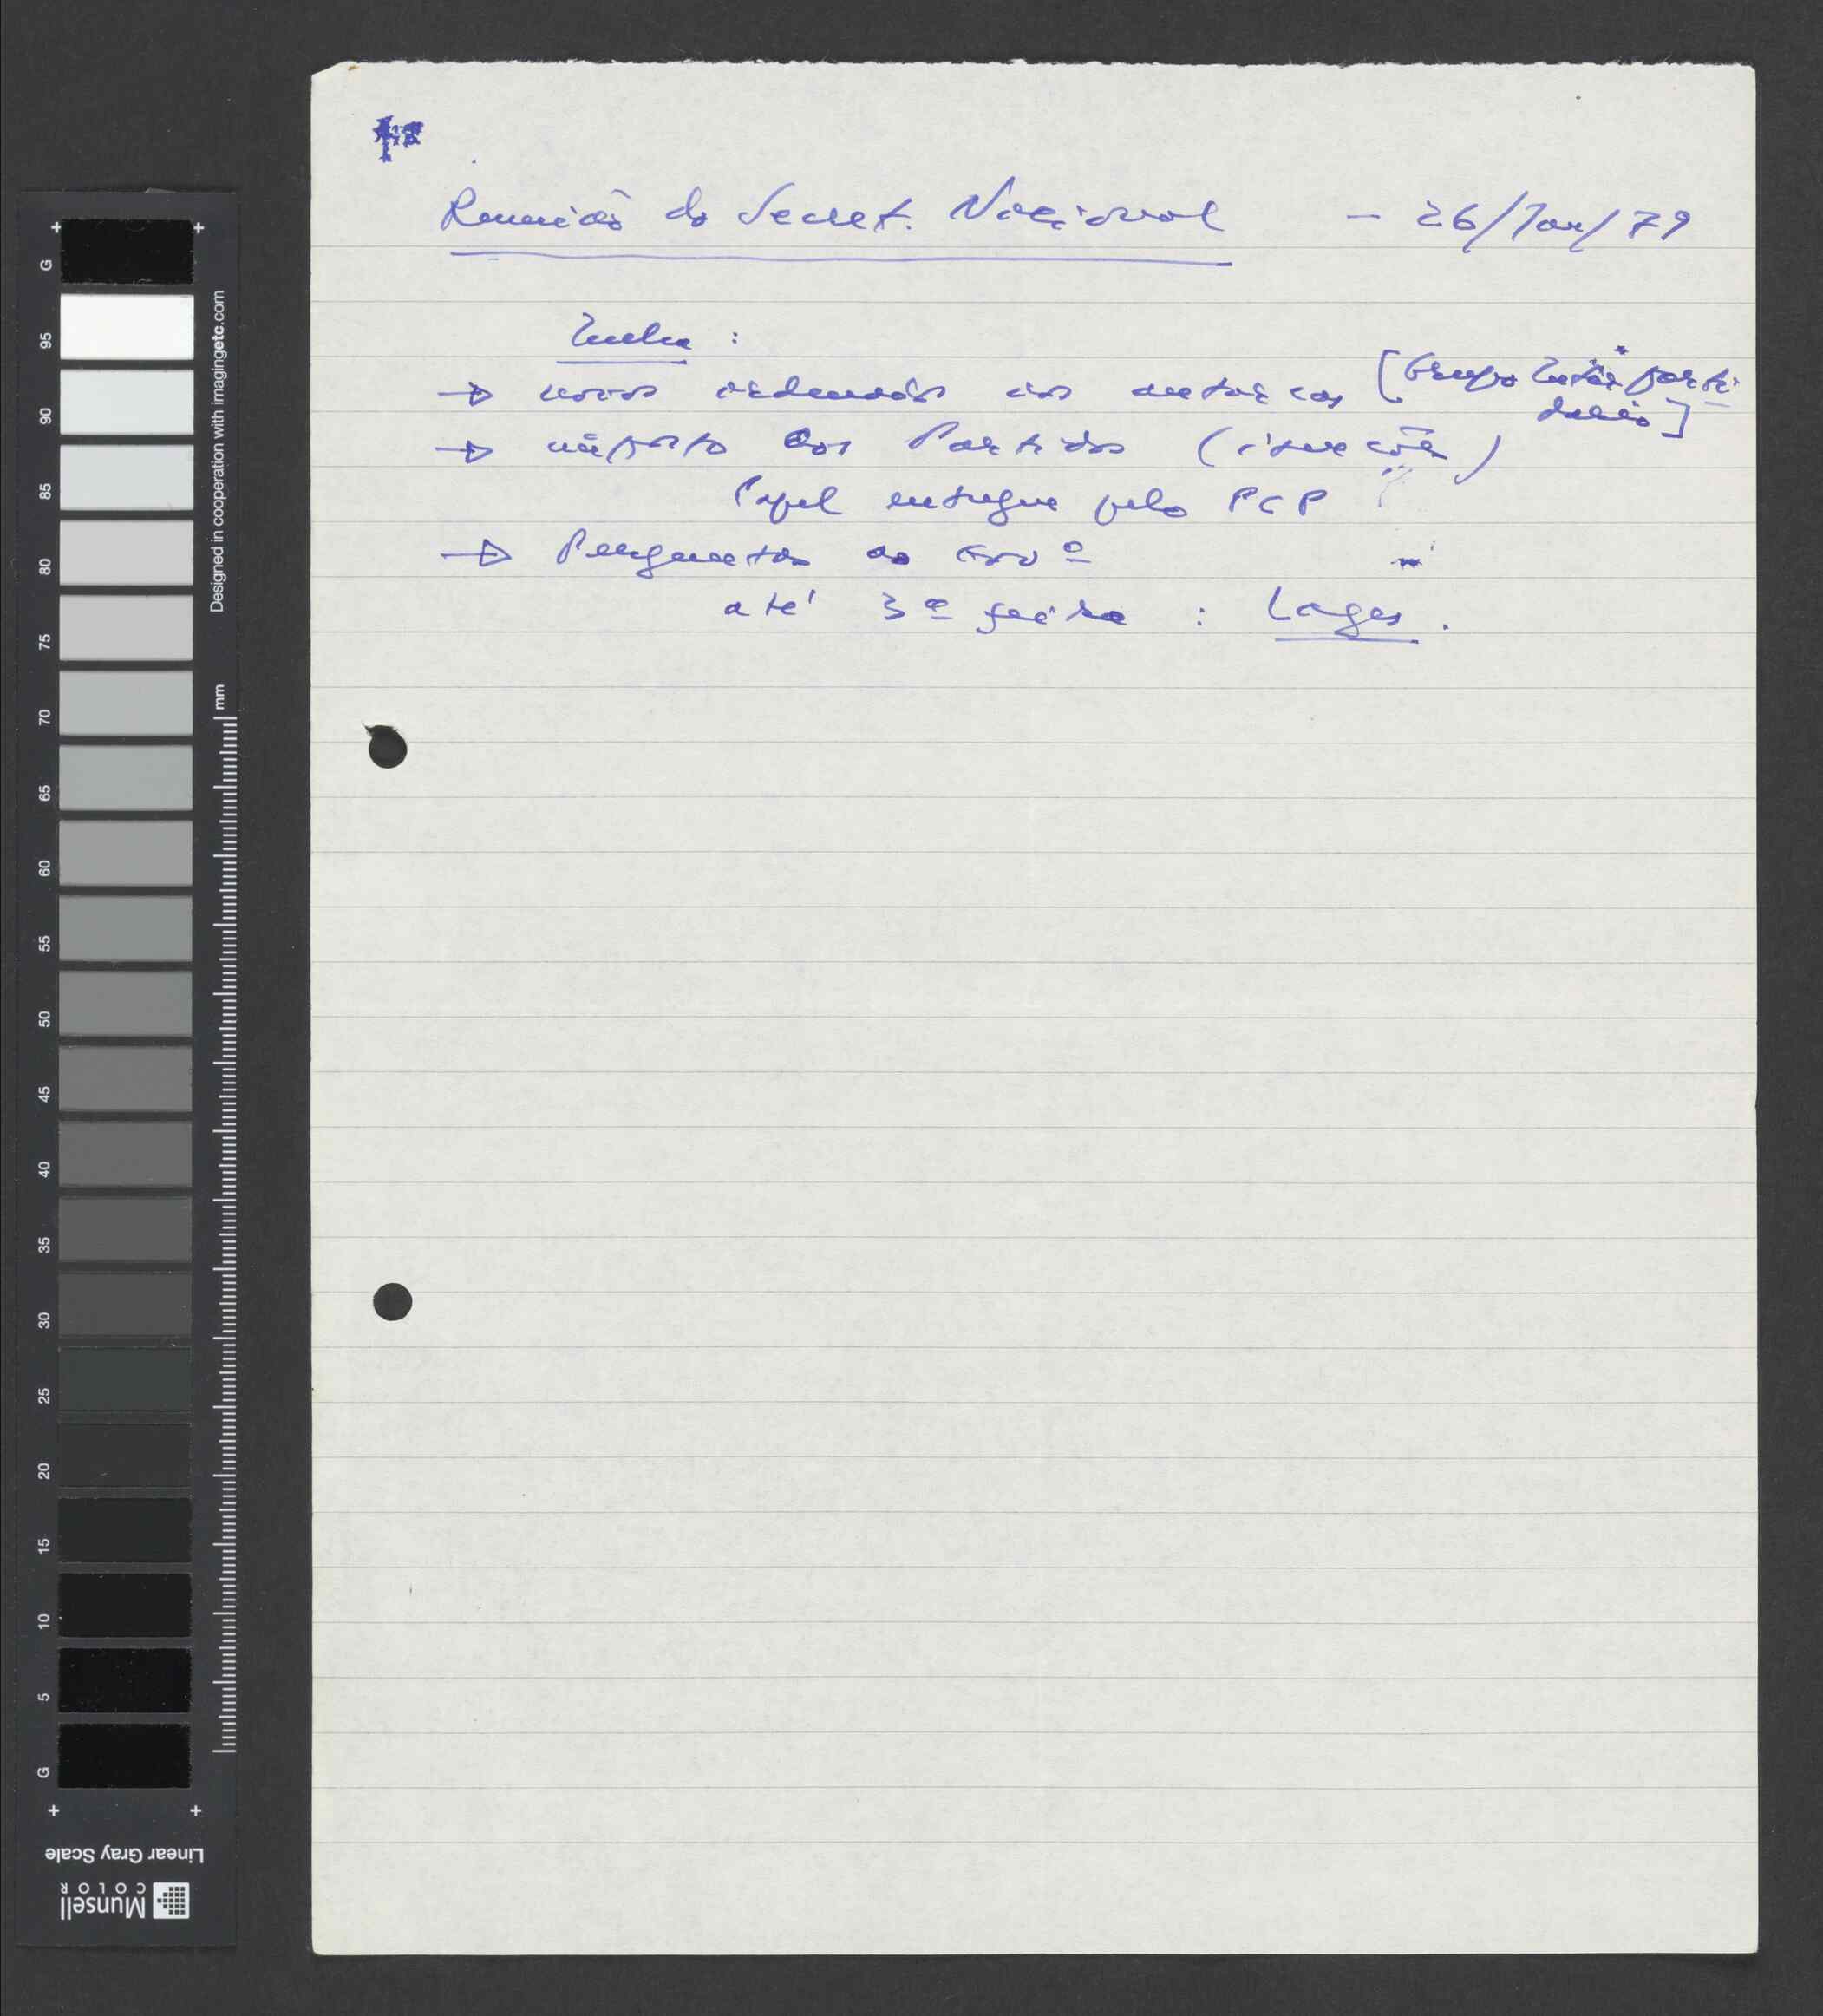 Reunião do Secret. Nacional — 26/Jan/79
Zenha :
→ novos ordenados às autarcas [Grupo Inter parti-
dário]
→ imposto dos Partidos (isenções)
Papel entregue pelo PCP
→ Perguntas ao Govº
até 3ª feira : Lages .
G
95
90
85
80
75
70
65
60
55
50
45
40
35
30
25
20
15
10
5
G
Designed in cooperation with imagingetc.com
mm
Linear Gray Scale
Munsell
COLOR